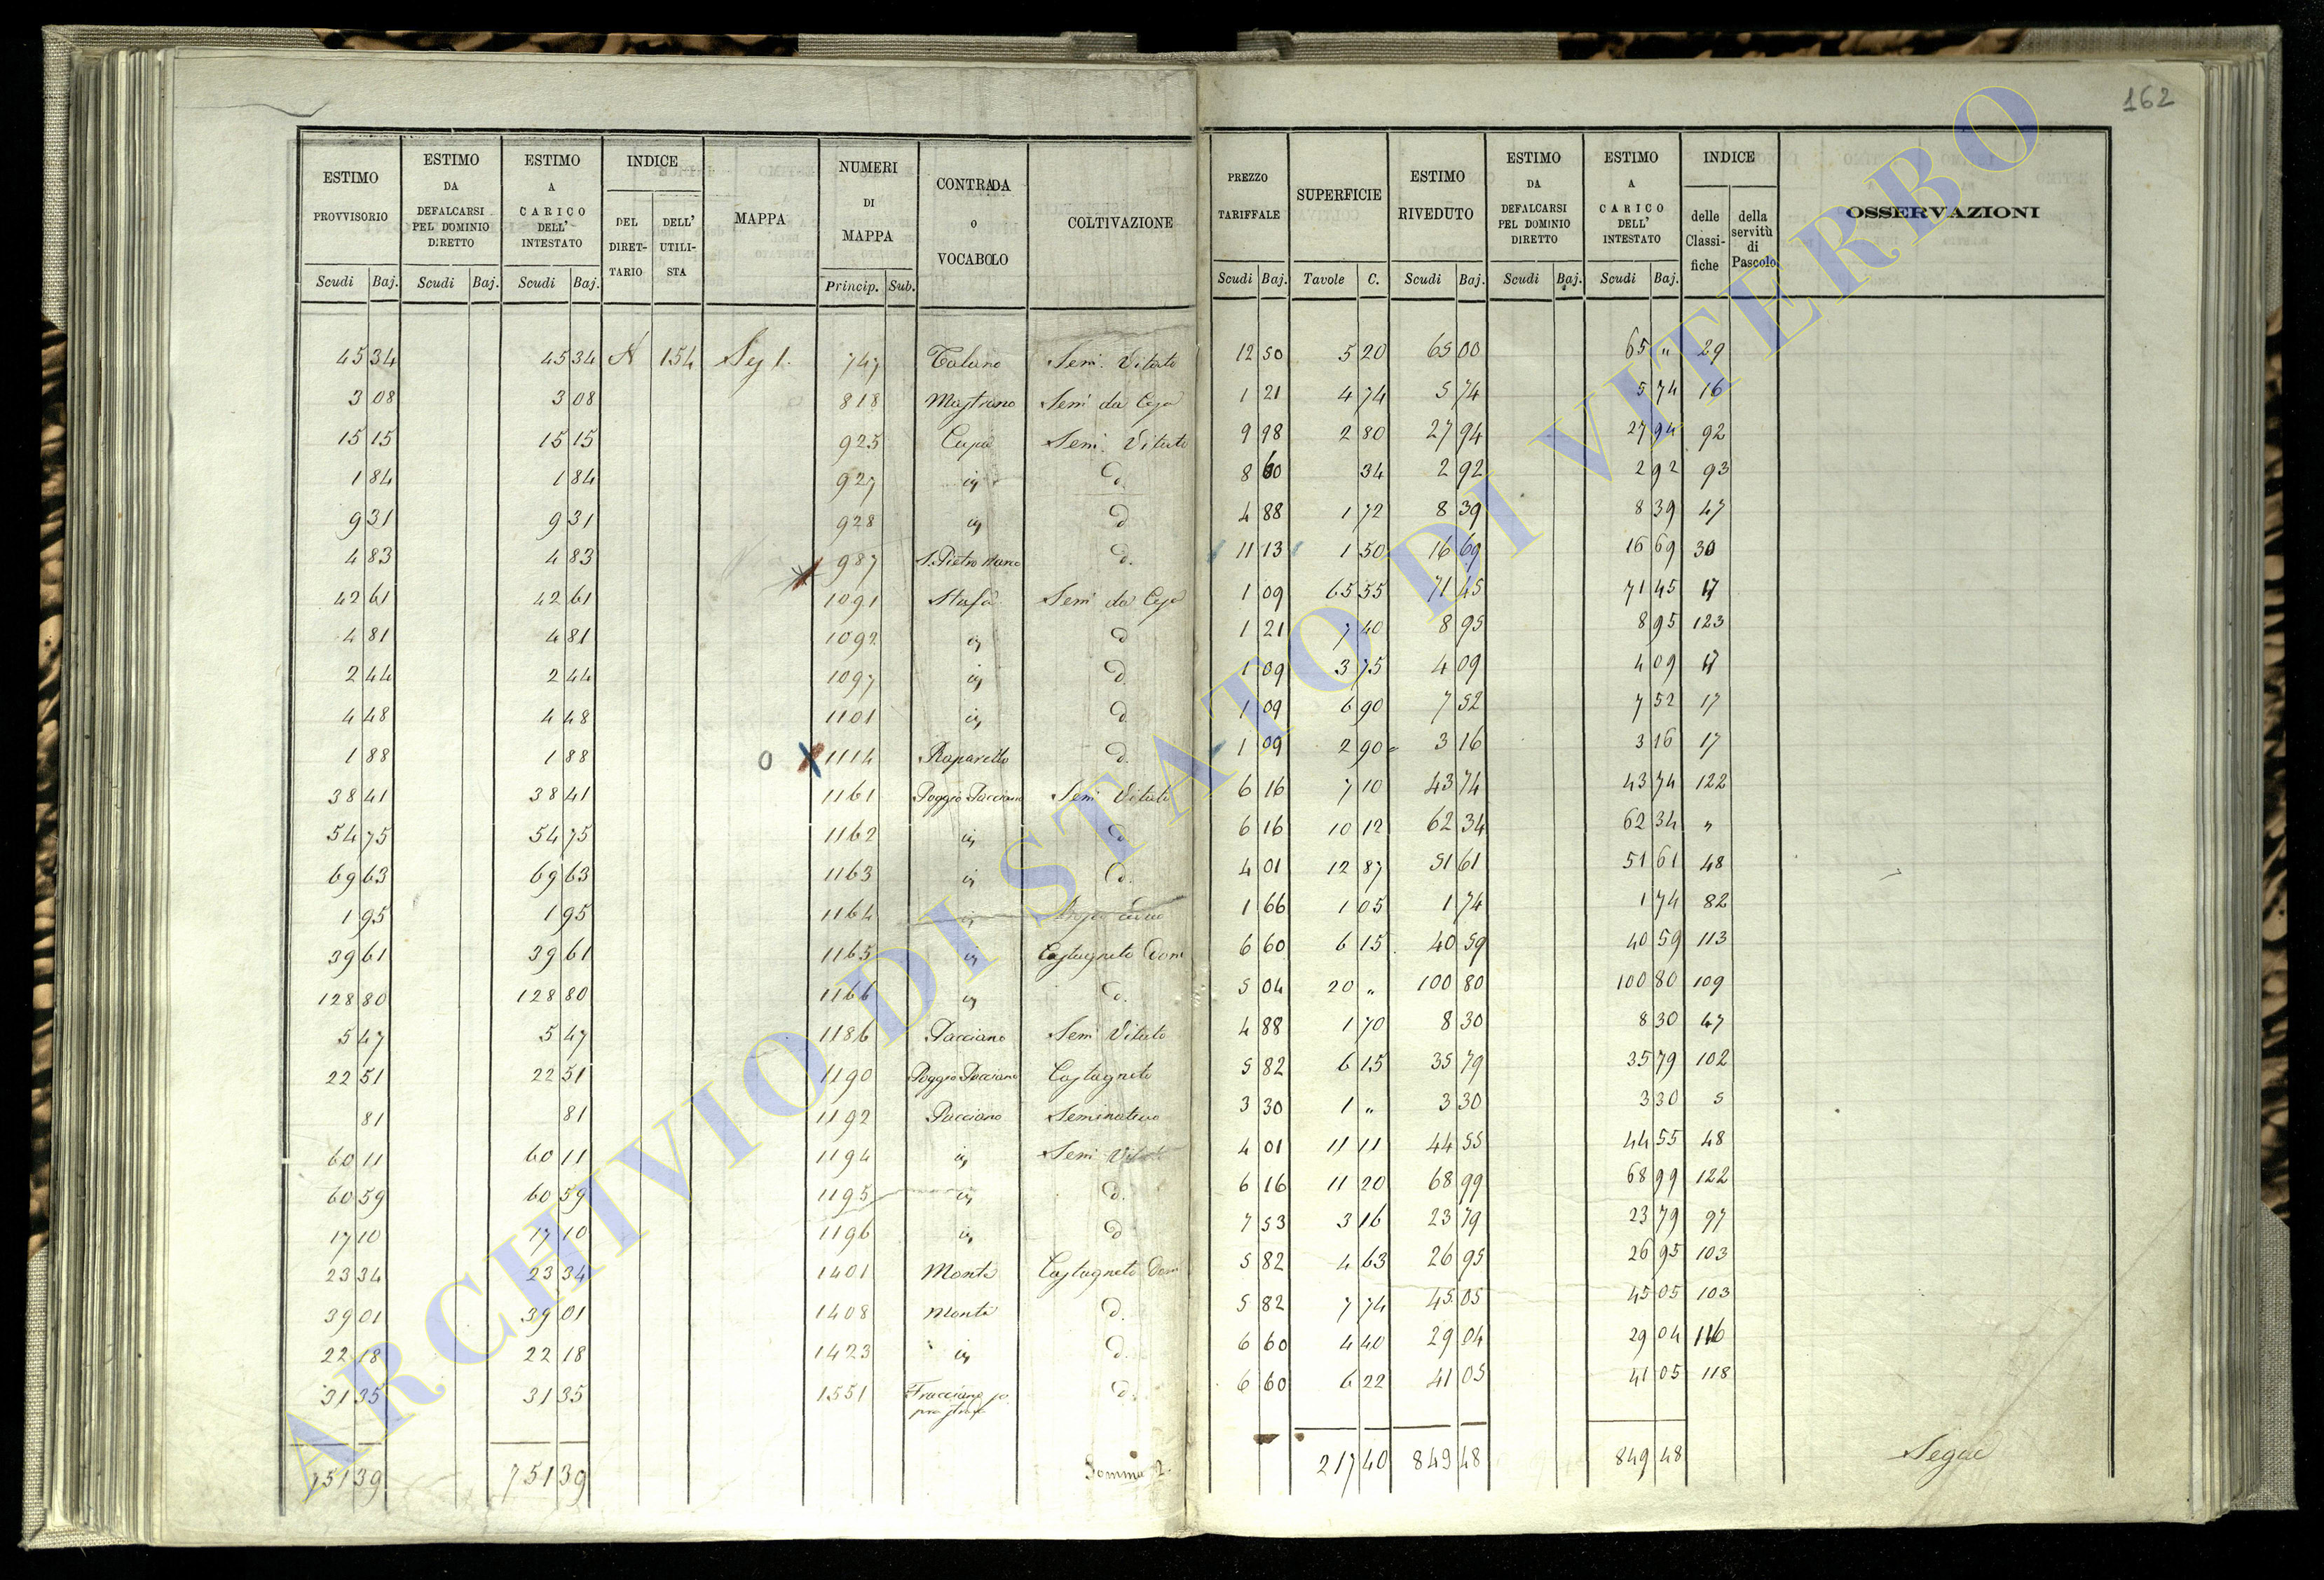 162
ESTIMO PROVVISORIO | ESTIMO DA DEFALCARSI PEL DOMINIO DIRETTO | ESTIMO A CARICO DELL' INTESTATO | INDICE DEL DIRET-TARIO | DELL' UTILI-STA | MAPPA | NUMERI DI MAPPA | CONTRADA o VOCABOLO | COLTIVAZIONE | PREZZO TARIFFALE | SUPERFICIE | ESTIMO RIVEDUTO | ESTIMO DA DEFALCARSI PEL DOMINIO DIRETTO | ESTIMO A CARICO DELL' INTESTATO | INDICE delle Classi-fiche | della servitù di Pascolo | OSSERVAZIONI
Scudi Baj. | Scudi Baj. | Scudi Baj. | Princip. Sub. | Scudi Baj. | Tavole C. | Scudi Baj. | Scudi Baj. | Scudi Baj.
45 34 | 45 34 | N | 154 | Sez 1. | 747 | Talano | Sem. Vitato | 12 50 | 5 20 | 65 00 | 65 " | 29
3 08 | 3 08 | 818 | Mastrano | Sem da | 1 21 | 4 74 | 5 74 | 5 74 | 16
15 15 | 15 15 | 925 | Cupa | Sem. Vitato | 9 98 | 2 80 | 27 94 | 27 94 | 92
1 84 | 1 84 | 927 | in | d. | 8 60 | 34 | 2 92 | 2 92 | 93
9 31 | 9 31 | 928 | in | d | 4 88 | 1 72 | 8 39 | 8 39 | 47
4 83 | 4 83 | 987 | S. Pietro | d. | 11 13 | 1 50 | 16 69 | 16 69 | 30
42 61 | 42 61 | 1091 | Stafa | Sem da | 1 09 | 65 55 | 71 45 | 71 45 | 17
4 81 | 4 81 | 1092 | in | d | 1 21 | 7 40 | 8 95 | 8 95 | 123
2 44 | 2 44 | 1097 | in | d. | 1 09 | 3 75 | 4 09 | 4 09 | 17
4 48 | 4 48 | 1101 | in | d | 1 09 | 6 90 | 7 52 | 7 52 | 17
1 88 | 1 88 | O X | 1114 | Raparello | d. | 1 09 | 2 90 | 3 16 | 3 16 | 17
38 41 | 38 41 | 1161 | Poggio Pacciano | Sem Vitato | 6 16 | 7 10 | 43 74 | 43 74 | 122
54 75 | 54 75 | 1162 | in | d | 6 16 | 10 12 | 62 34 | 62 34 | "
69 63 | 69 63 | 1163 | in | d. | 4 01 | 12 87 | 51 61 | 51 61 | 48
1 95 | 1 95 | 1164 | in | 1 66 | 1 05 | 1 74 | 1 74 | 82
39 61 | 39 61 | 1165 | in | Castagneto Dom | 6 60 | 6 15 | 40 59 | 40 59 | 113
128 80 | 128 80 | 1166 | in | d. | 5 04 | 20 " | 100 80 | 100 80 | 109
5 47 | 5 47 | 1186 | Pacciano | Sem Vitato | 4 88 | 1 70 | 8 30 | 8 30 | 47
22 51 | 22 51 | 1190 | Poggio Pacciano | Castagneto | 5 82 | 6 15 | 35 79 | 35 79 | 102
81 | 81 | 1192 | Pacciano | Seminativo | 3 30 | 1 " | 3 30 | 3 30 | 5
60 11 | 60 11 | 1194 | in | Sem Vitato | 4 01 | 11 11 | 44 55 | 44 55 | 48
60 59 | 60 59 | 1195 | in | d. | 6 16 | 11 20 | 68 99 | 68 99 | 122
17 10 | 17 10 | 1196 | in | d | 7 53 | 3 16 | 23 79 | 23 79 | 97
23 34 | 23 34 | 1401 | Monte | Castagneto Dom | 5 82 | 4 63 | 26 95 | 26 95 | 103
39 01 | 39 01 | 1408 | Monte | d. | 5 82 | 7 74 | 45 05 | 45 05 | 103
22 18 | 22 18 | 1423 | in | d. | 6 60 | 4 40 | 29 04 | 29 04 | 116
31 35 | 31 35 | 1551 | d. | 6 60 | 6 22 | 41 05 | 41 05 | 118
751 39 | 751 39 | Somma 2. | 217 40 | 849 48 | 849 48 | Segue
ARCHIVIO DI STATO DI VITERBO